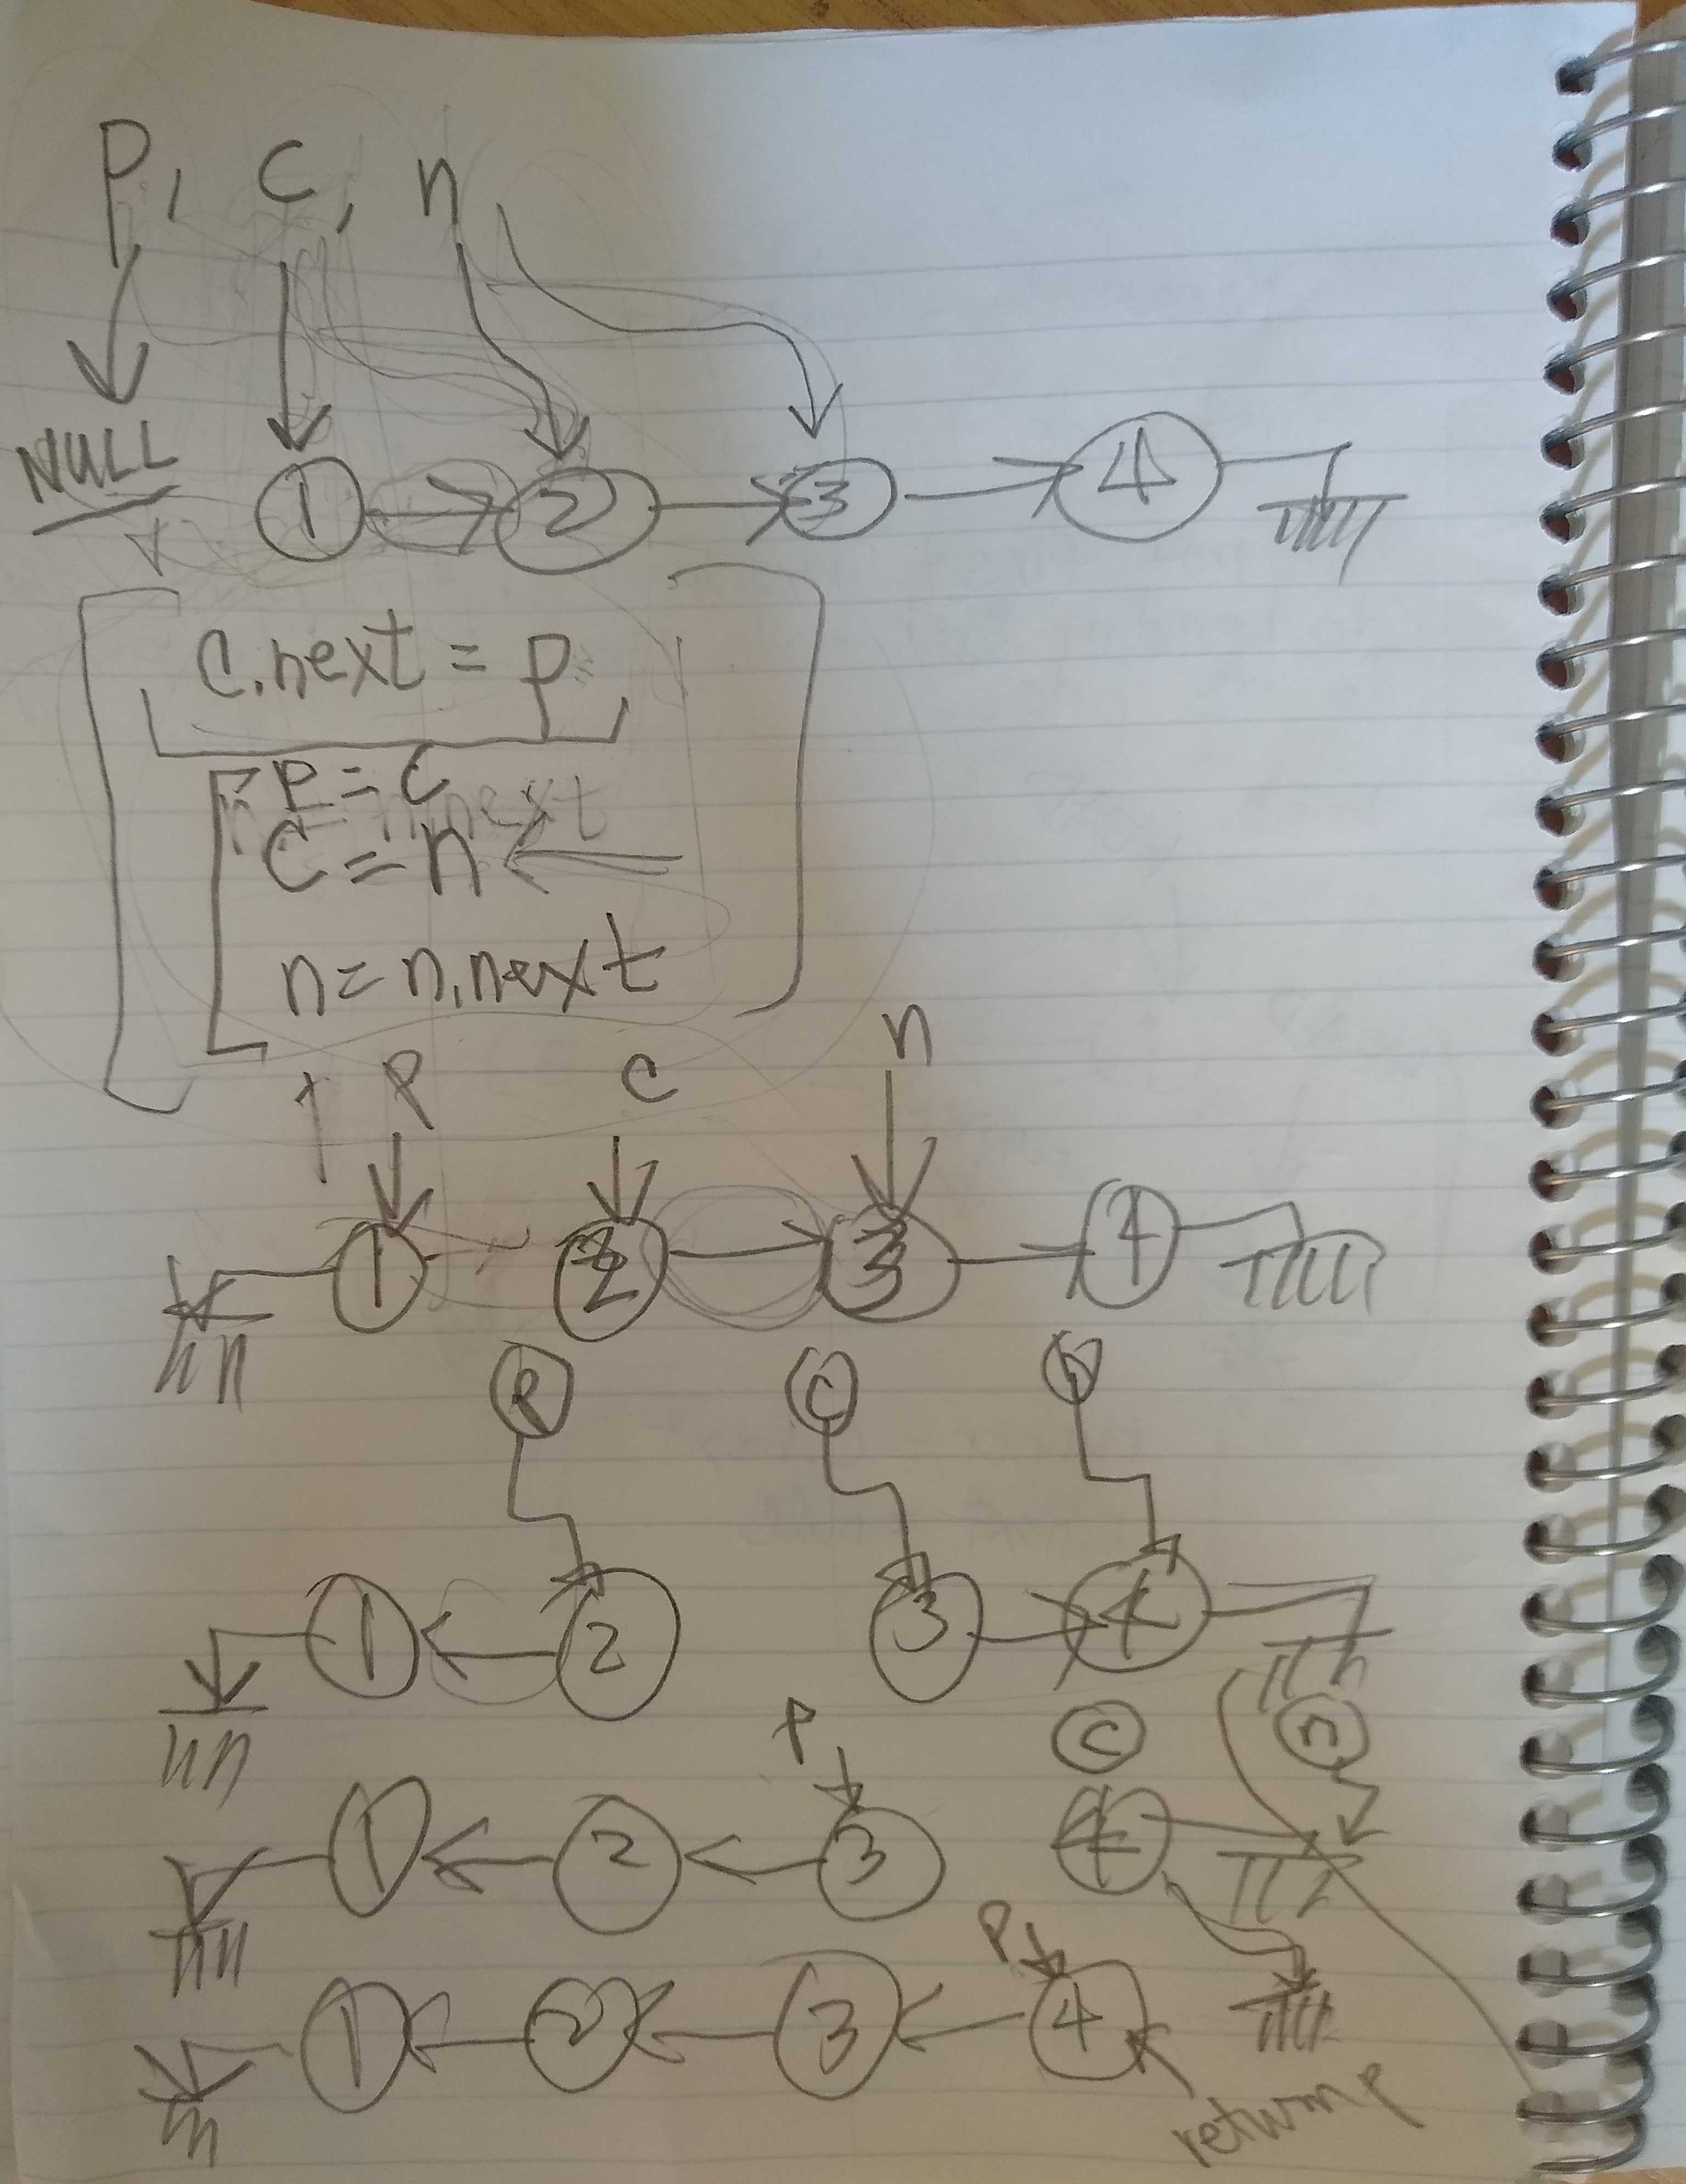 p, c, n
NULL
1 2 3 4
c.next = p
p = c
c = n
n = n.next
p c n
1 2 3 4
p c n
1 2 3 4
p c n
1 2 3 4
p
1 2 3 4
return p